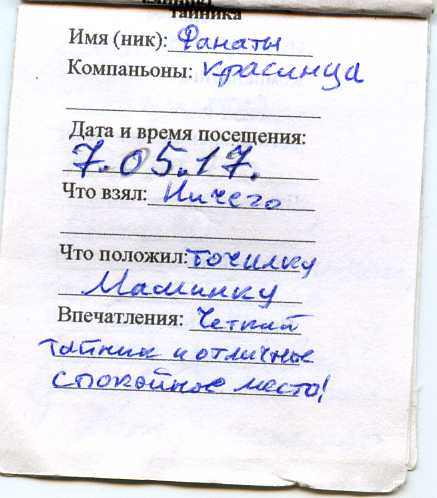 тайника
Имя (ник): Фанаты
Компаньоны: красинца
Дата и время посещения:
7.05.17.
Что взял: Ничего
Что положил: точилку
Машинку
Впечатления: Четкий
тайник и отличное
спокойное место!